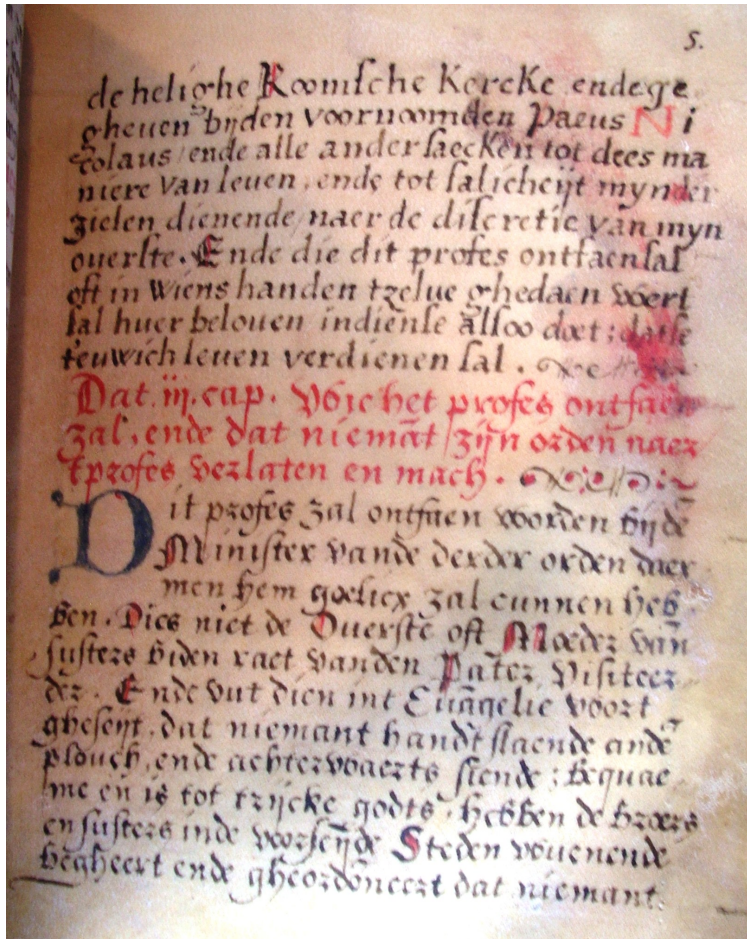 5.
de helighe Roomsche Kercke ende ge
gheuen bijden voornoomden Paeus Ni
colaus, ende alle ander saecken tot dees ma
niere van leuen, ende tot salicheijt mynder
zielen dienende, naer de discretie van myn
ouerste. Ende die dit profes ontfaen sal
oft in wiens handen tzelue ghedaen woert
sal huer belouen indiense alsoo doet: datse
teuwich leuen verdienen sal.
Dat iij. cap. Wie het profes ontfaen
zal, ende dat niemāt zijn orden naer
tprofes verlaten en mach.
Dit profes zal ontfaen worden bijdē
Minister vande derder orden daer
men hem goelicx zal cunnen heb
ben. Dies niet de Ouerste oft Moeder van
susters biden raet vanden Pater Visiteer
der. Ende vut dien int Euāgelie voort
gheseyt, dat niemant handt slaende ande
plouch, ende achterwaerts siende, bequae
me en is tot trijcke godts, hebben de broers
en susters inde voorseijde Steden wouenende
begheert ende gheordoneert dat niemant